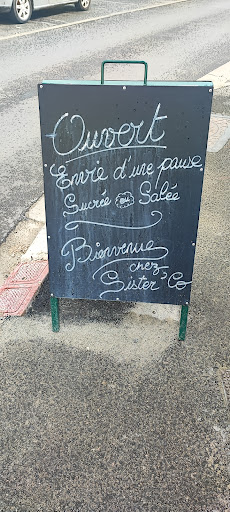 Ouvert
Envie d'une pause
Sucrée ou Salée
Bienvenue
chez
Sister' Co